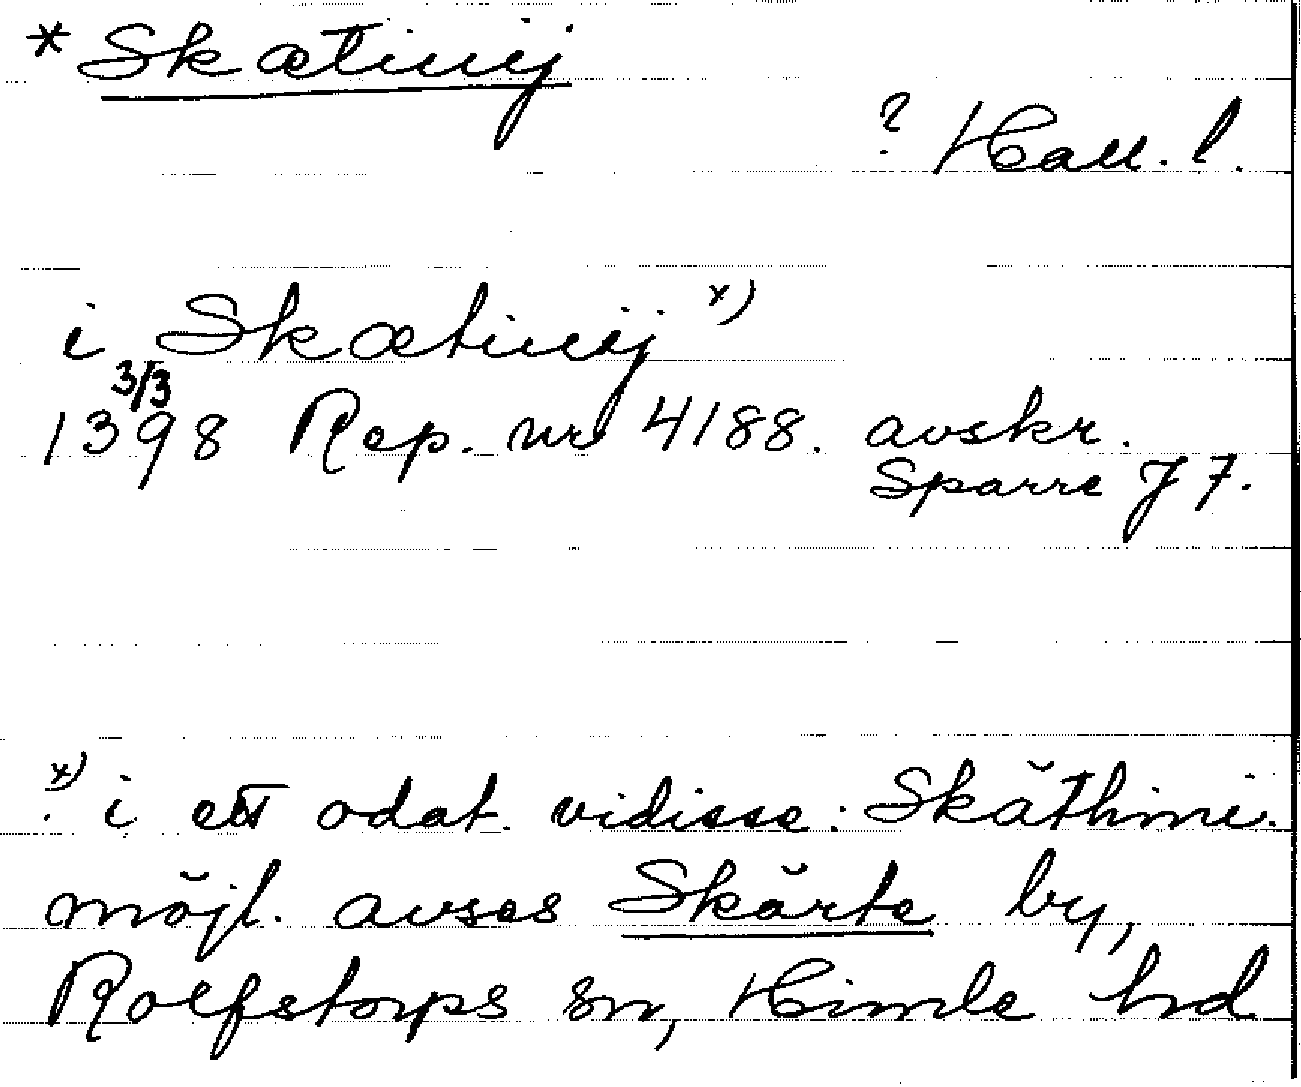 * Skætinij
? Hall. l.
i Skætinij x)
3/3
1398 Rep. nr 4188. avskr.
Sparre J 7.
x) i ett odat. vidisse: Skäthini.
möjl. avses Skärte by,
Rolfstorps sn, Himle hd